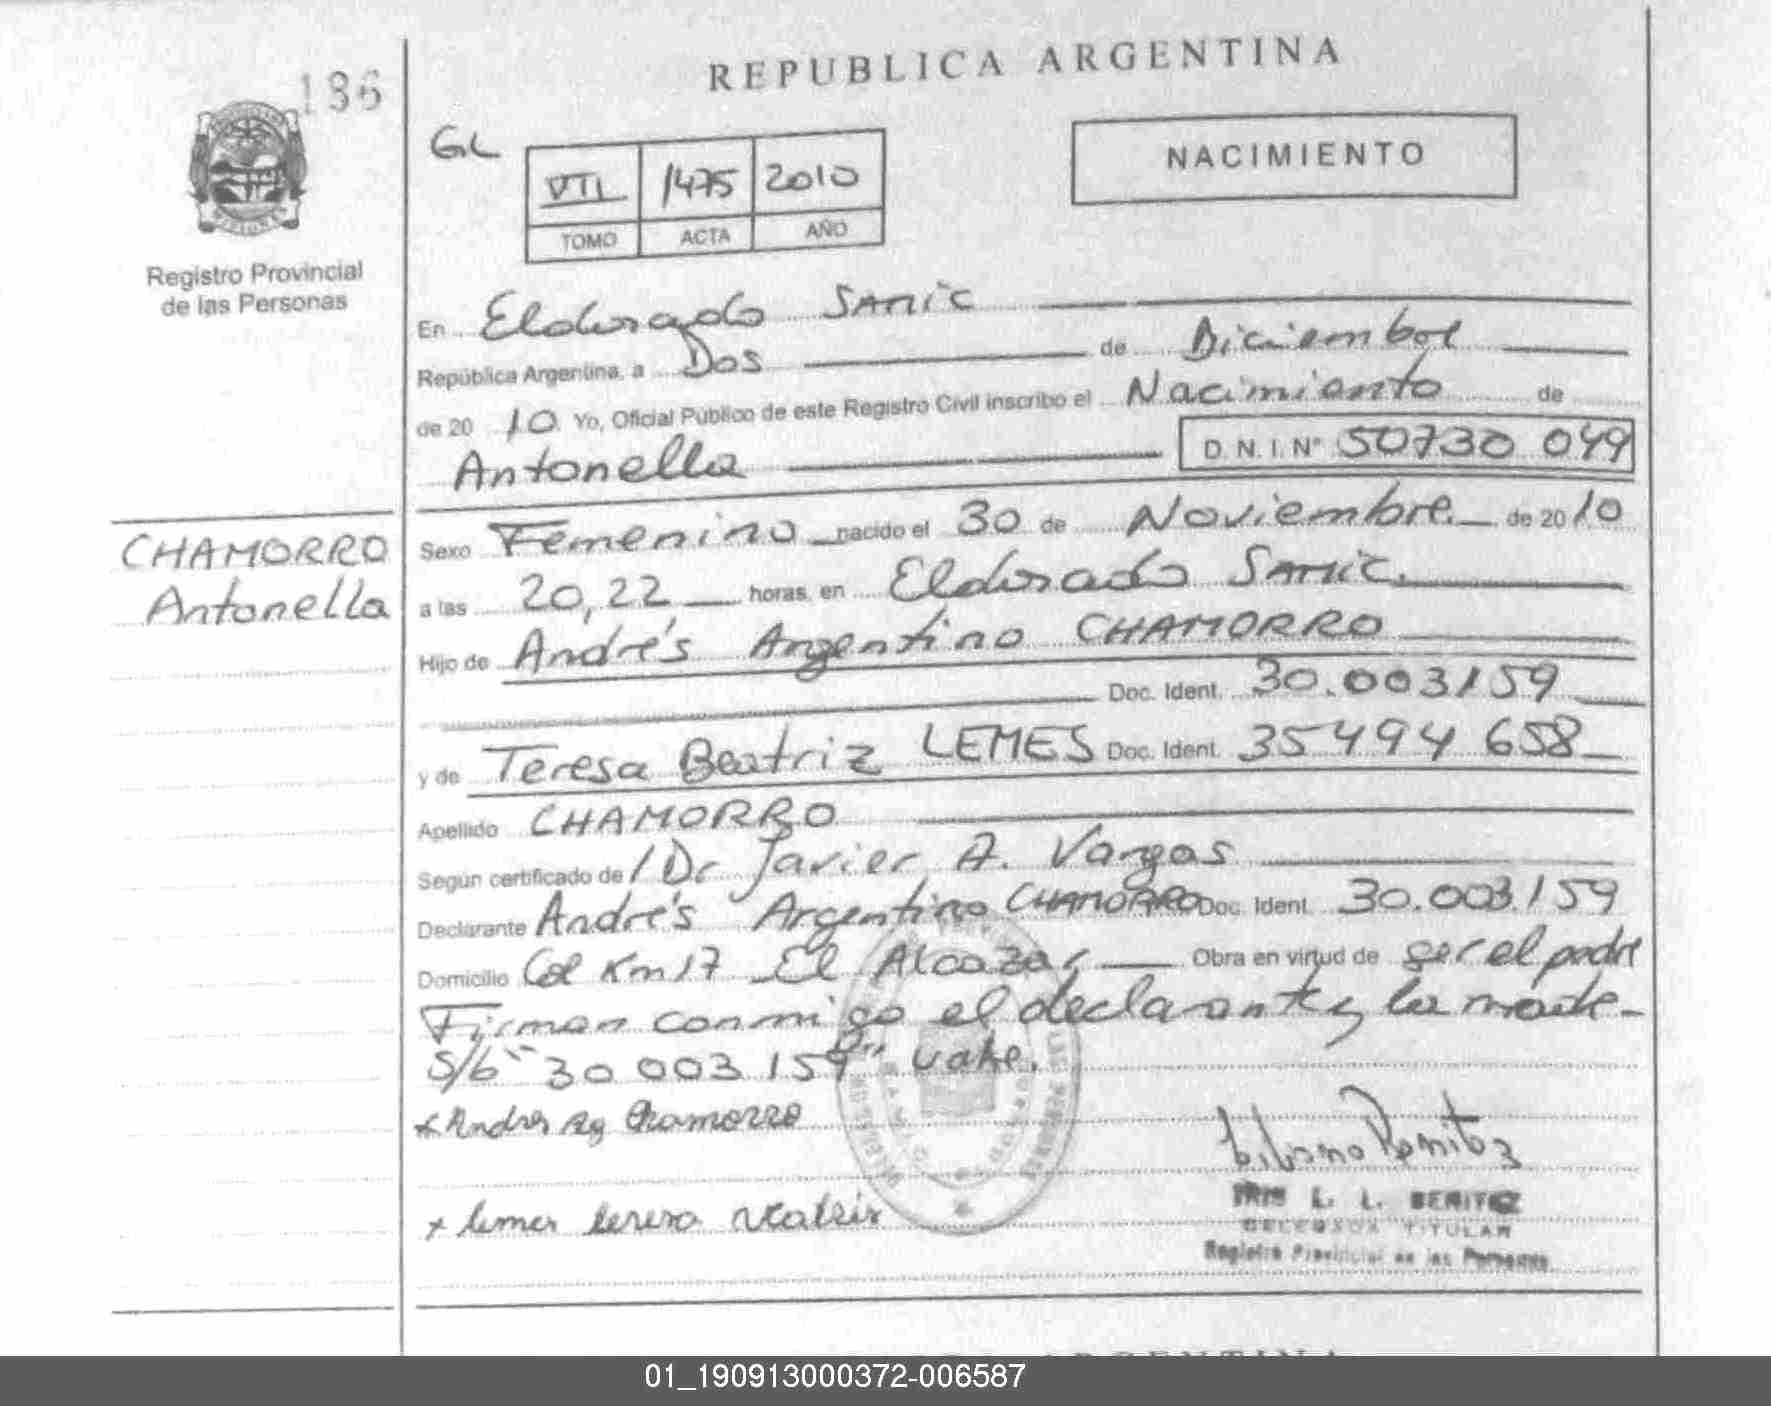 REPUBLICA ARGENTINA
136
GL
VII 1475 2010
TOMO ACTA AÑO
NACIMIENTO
Registro Provincial
de las Personas
En Eldorado SAMIC
República Argentina, a Dos de Diciembre
de 20 10 Yo, Oficial Público de este Registro Civil inscribo el Nacimiento de
Antonella D. N. I. Nº 50730 049
CHAMORRO
Antonella
Sexo Femenino nacido el 30 de Noviembre de 20 10
a las 20,22 horas, en Eldorado SAMIC.
Hijo de Andrés Argentino CHAMORRO
Doc. Ident. 30.003159
y de Teresa Beatriz LEMES Doc. Ident. 35494 658
Apellido CHAMORRO
Según certificado de / Dr Javier A. Vargas
Declarante Andrés Argentino CHAMORRO Doc. Ident. 30.003.159
Domicilio Col Km 17 El Alcazar Obra en virtud de ser el padre
Firman conmigo el declarante y la madre-
S/b "30 003 159" vale.
x Andres Ag Chamorro
x lemes teresa
L. L. BENITEZ
TITULAR
Registro Provincial de las Personas
01_190913000372-006587